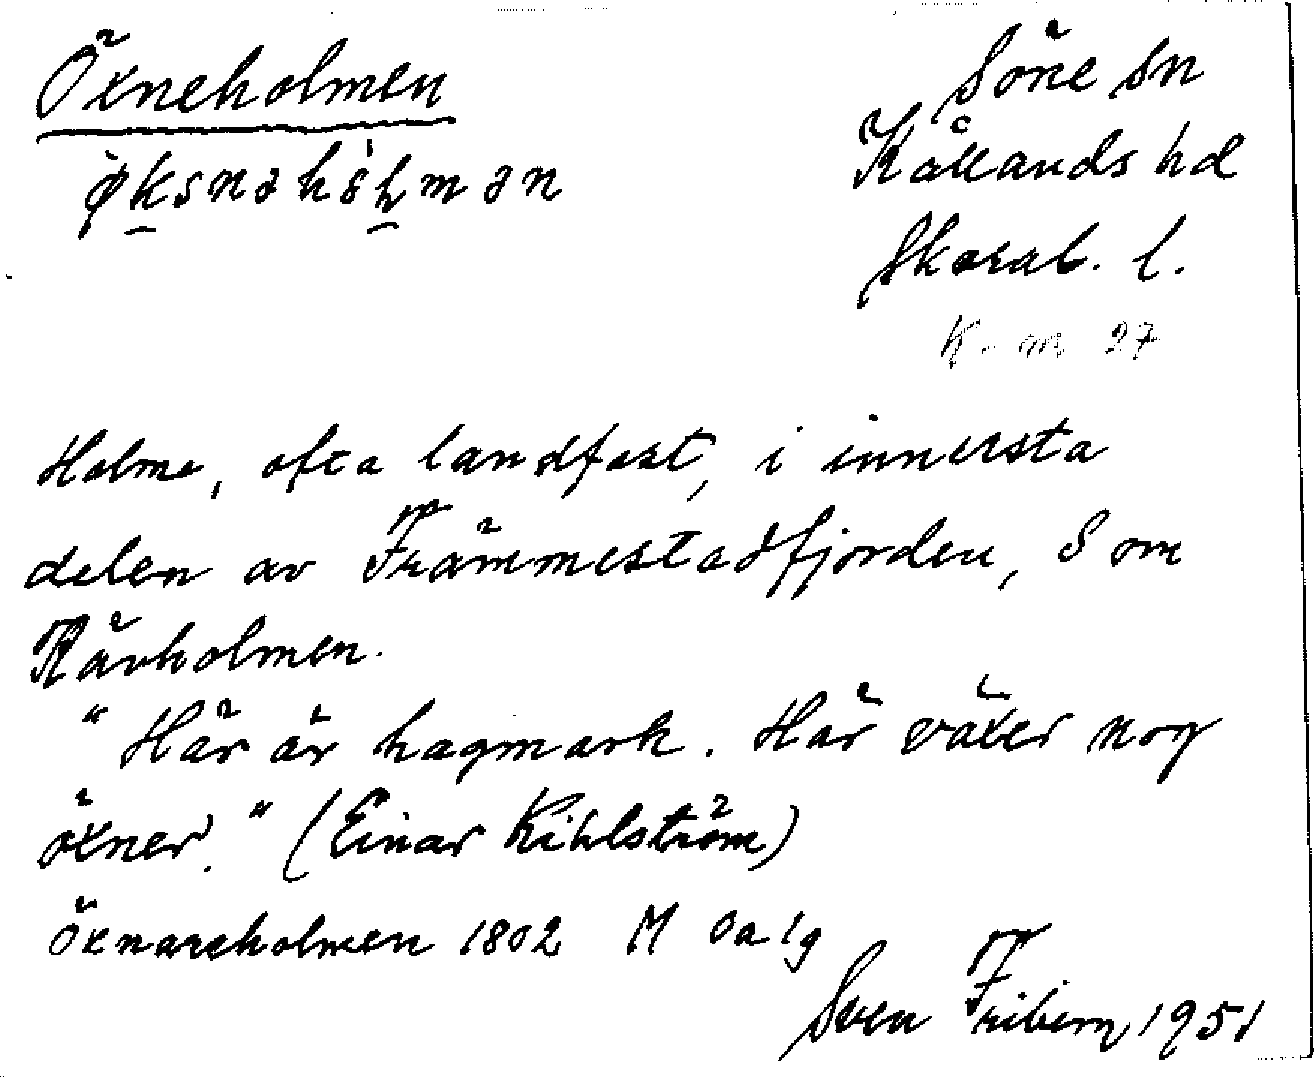 Öxneholmen
Söne sn
Kållands hd
Skarab. l.
K. m 27
Holme, ofta landfast, i innersta
delen av Främmestadfjorden, S om
Rävholmen.
"Här är hagmark. Här växer nog
öxner." (Einar Kihlström)
Öxnareholmen 1802 M
Sven Friberg 1951